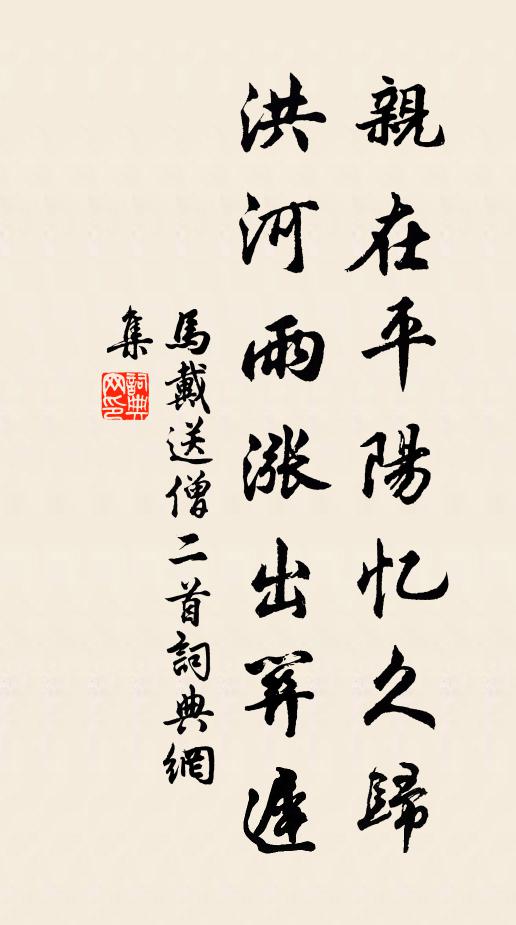 親在平陽忆久歸
洪河雨漲出關遲
馬戴送僧二首詞典網
集
詞典
网印